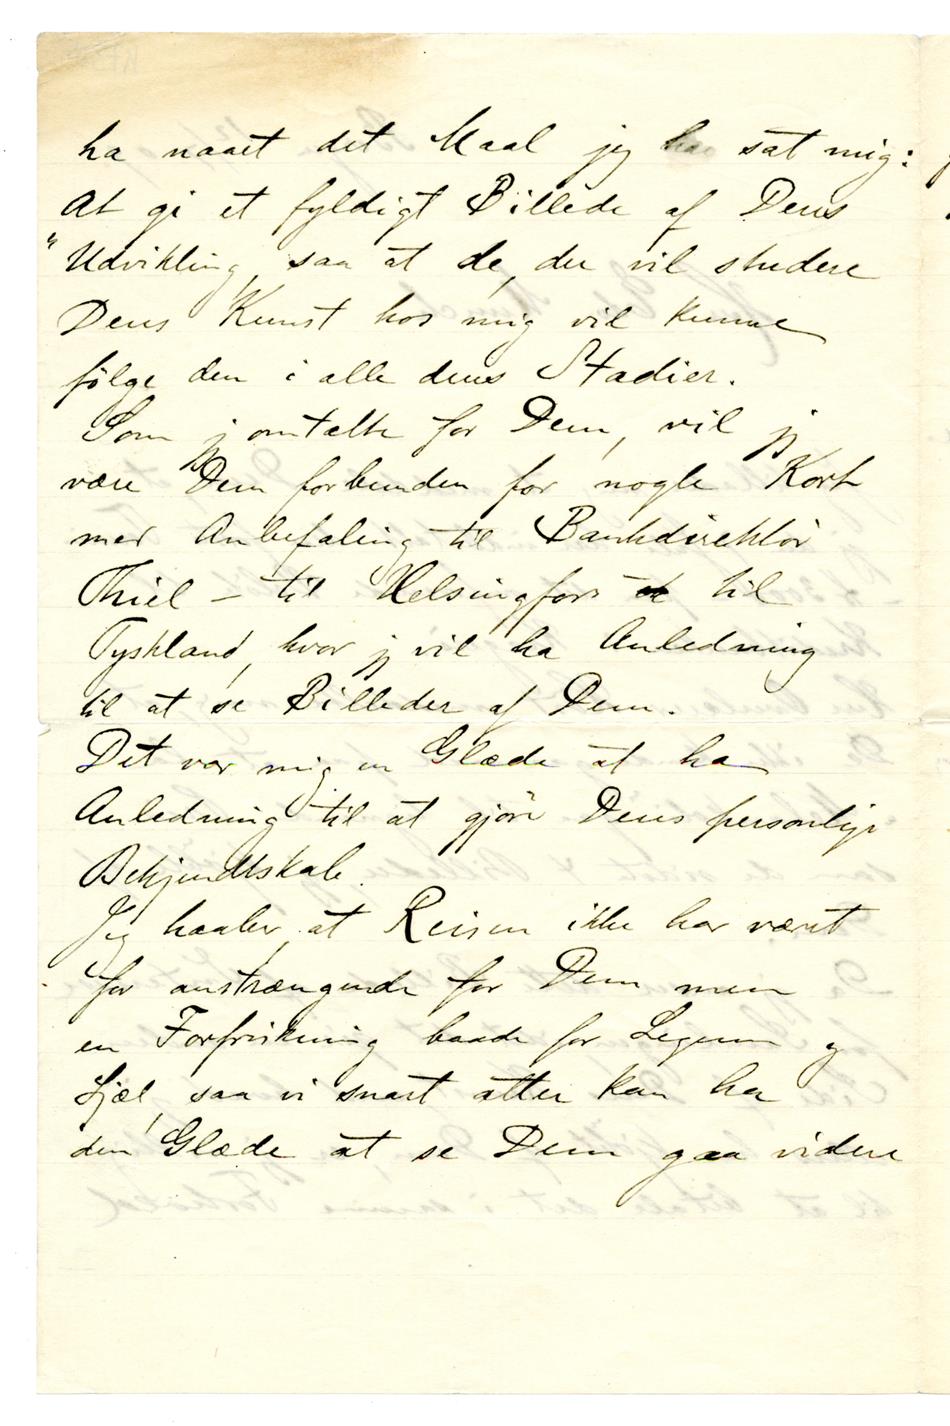 ha naaet det Maal jeg har sat mig:
At gi et fyldigt Billede af Deres
Udvikling, saa at de, der vil studere
Deres Kunst hos mig vil kunne
følge den i alle dens Stadier.
Som jeg omtalte for Dem, vil jeg
være Dem forbunden for nogle Kort
med Anbefaling til Bankdirektör
Thiel – til Helsingfors til
Tyskland, hvor jeg vil ha Anledning
til at se Billeder af Dem.
Det var mig en Glæde at ha
Anledning til at gjöre Deres personlige
Bekjendtskab.
Jeg haaber, at Reisen ikke har været
for anstrængende for Dem men
en Forfriskning baade for Legem og
Sjæl, saa vi snart atter kan ha
den Glæde at se Dem gaa videre